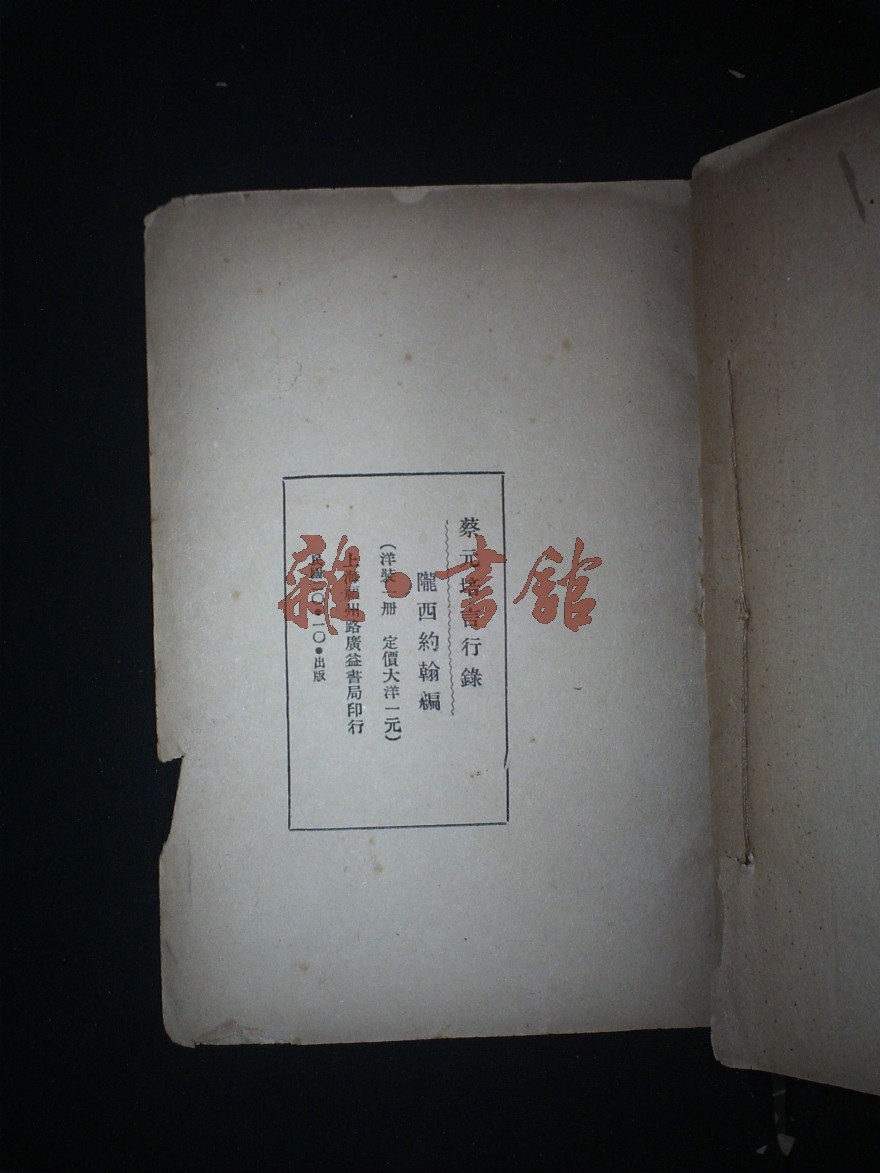 蔡元培言行錄
隴西約翰編
(洋裝一冊 定價大洋一元)
上海州路廣益書局印行
民國〇•一〇•出版
雜•書館